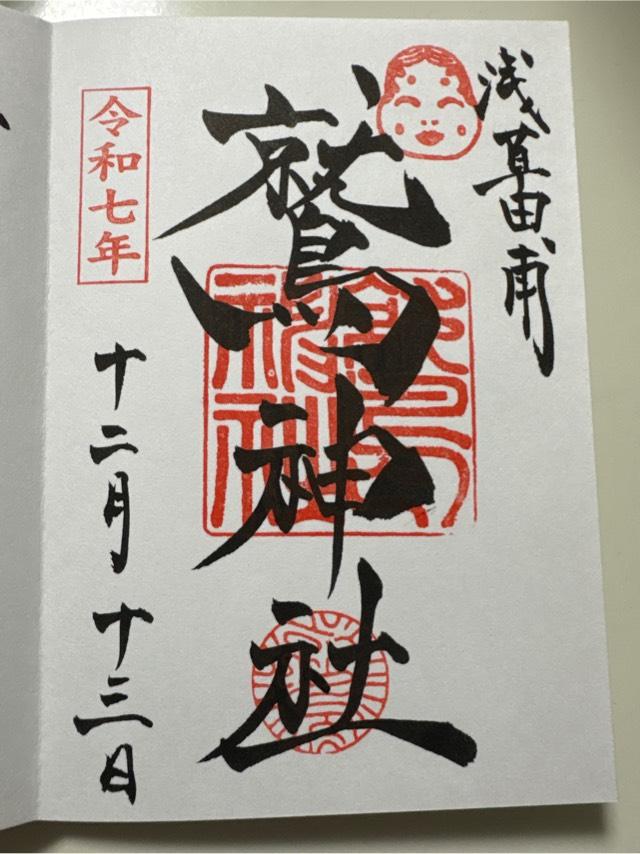 浅草田甫
鷲神社
令和七年
十二月十三日